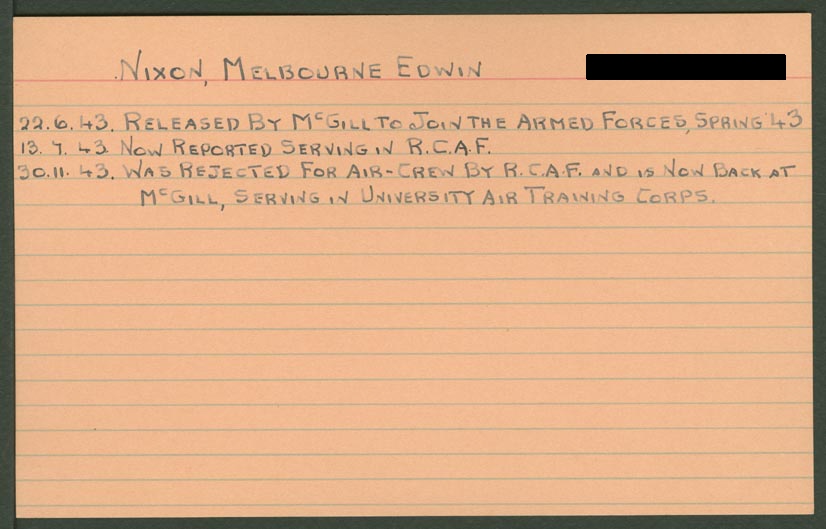 NIXON, MELBOURNE EDWIN
22.6.43. RELEASED BY McGILL TO JOIN THE ARMED FORCES, SPRING '43
13.7.43 NOW REPORTED SERVING IN R.C.A.F.
30.11.43. WAS REJECTED FOR AIR-CREW BY R.C.A.F. AND IS NOW BACK AT
McGILL, SERVING IN UNIVERSITY AIR TRAINING CORPS.